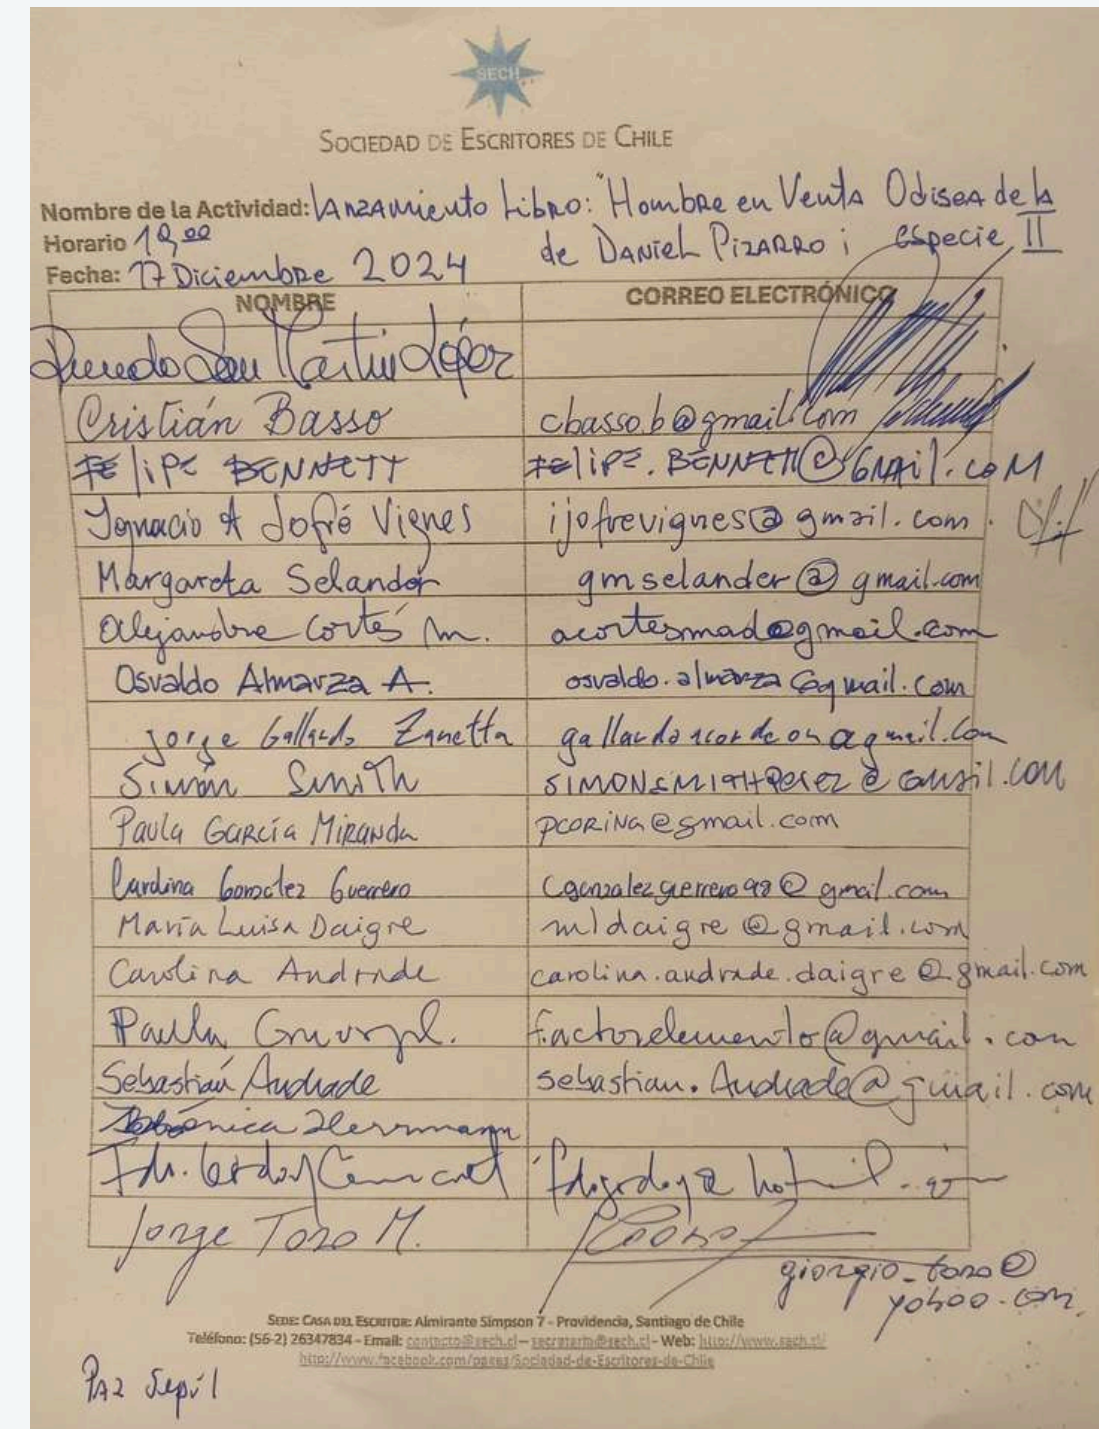 SECH
SOCIEDAD DE ESCRITORES DE CHILE
Nombre de la Actividad: Lanzamiento Libro: "Hombre en Venta Odisea de la
Horario 19,00 de DANIEL PIZARRO; especie, II
Fecha: 17 Diciembre 2024
NOMBRE CORREO ELECTRÓNICO
San Martín López
Cristián Basso cbasso.b@gmail.com
FEliPE BENNETT FEliPE.BENNETT@GMAil.coM
Ignacio A Jofré Vignes ijofrevignes@gmail.com
Margareta Selander gmselander@gmail.com
Alejandra Cortés M. acortesmad@gmail.com
Osvaldo Almarza A. osvaldo.almarza@gmail.com
Jorge Gallardo Zanetta gallardoacordeon@gmail.com
Simón Smith SIMONSMITHPEREZ@GMAIL.COM
Paula GARCÍA MIRANDA pcorina@gmail.com
Carolina González Guerrero cgonzalezguerrero98@gmail.com
María Luisa Daigre mldaigre@gmail.com
Carolina Andrade carolina.andrade.daigre@gmail.com
Paula factorelemento@gmail.com
Sebastián Andrade sebastian.Andrade@gmail.com
Herrmann
Jorge Toro M.
giorgio_toro@
yahoo.com
SEDE: CASA DEL ESCRITOR: Almirante Simpson 7 - Providencia, Santiago de Chile
Teléfono: (56-2) 26347834 - Email: contacto@sech.cl – secretaria@sech.cl - Web: http://www.sech.cl/
http://www.facebook.com/pages/Sociedad-de-Escritores-de-Chile
Paz